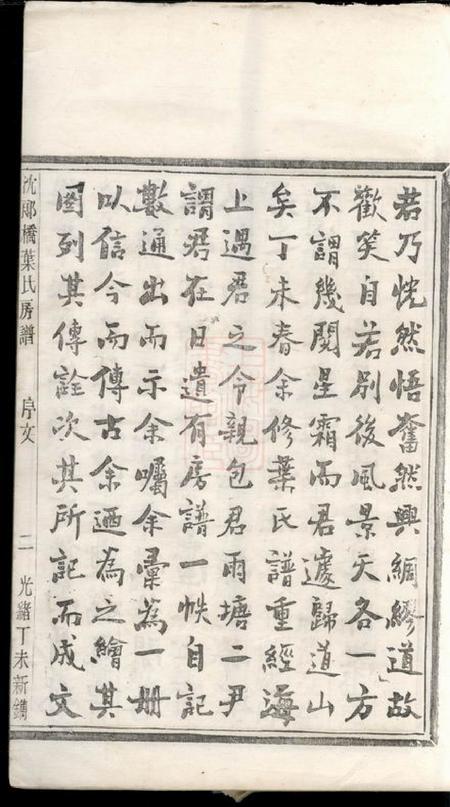 若乃恍然悟奮然興綢繆道故
歡笑自若别後風景天各一方
不謂幾閱星霜而君遽歸道山
矣丁未春余修葉氏譜重經海
上過君之令親包君雨塘二尹
謂君在日遺有房譜一帙自記
數通出而示余囑余彙為一册
以信今而傳古余迺為之繪其
圖列其傳詮次其所記而成文
沈郎橋葉氏房譜 序文 二 光緒丁未新鐫